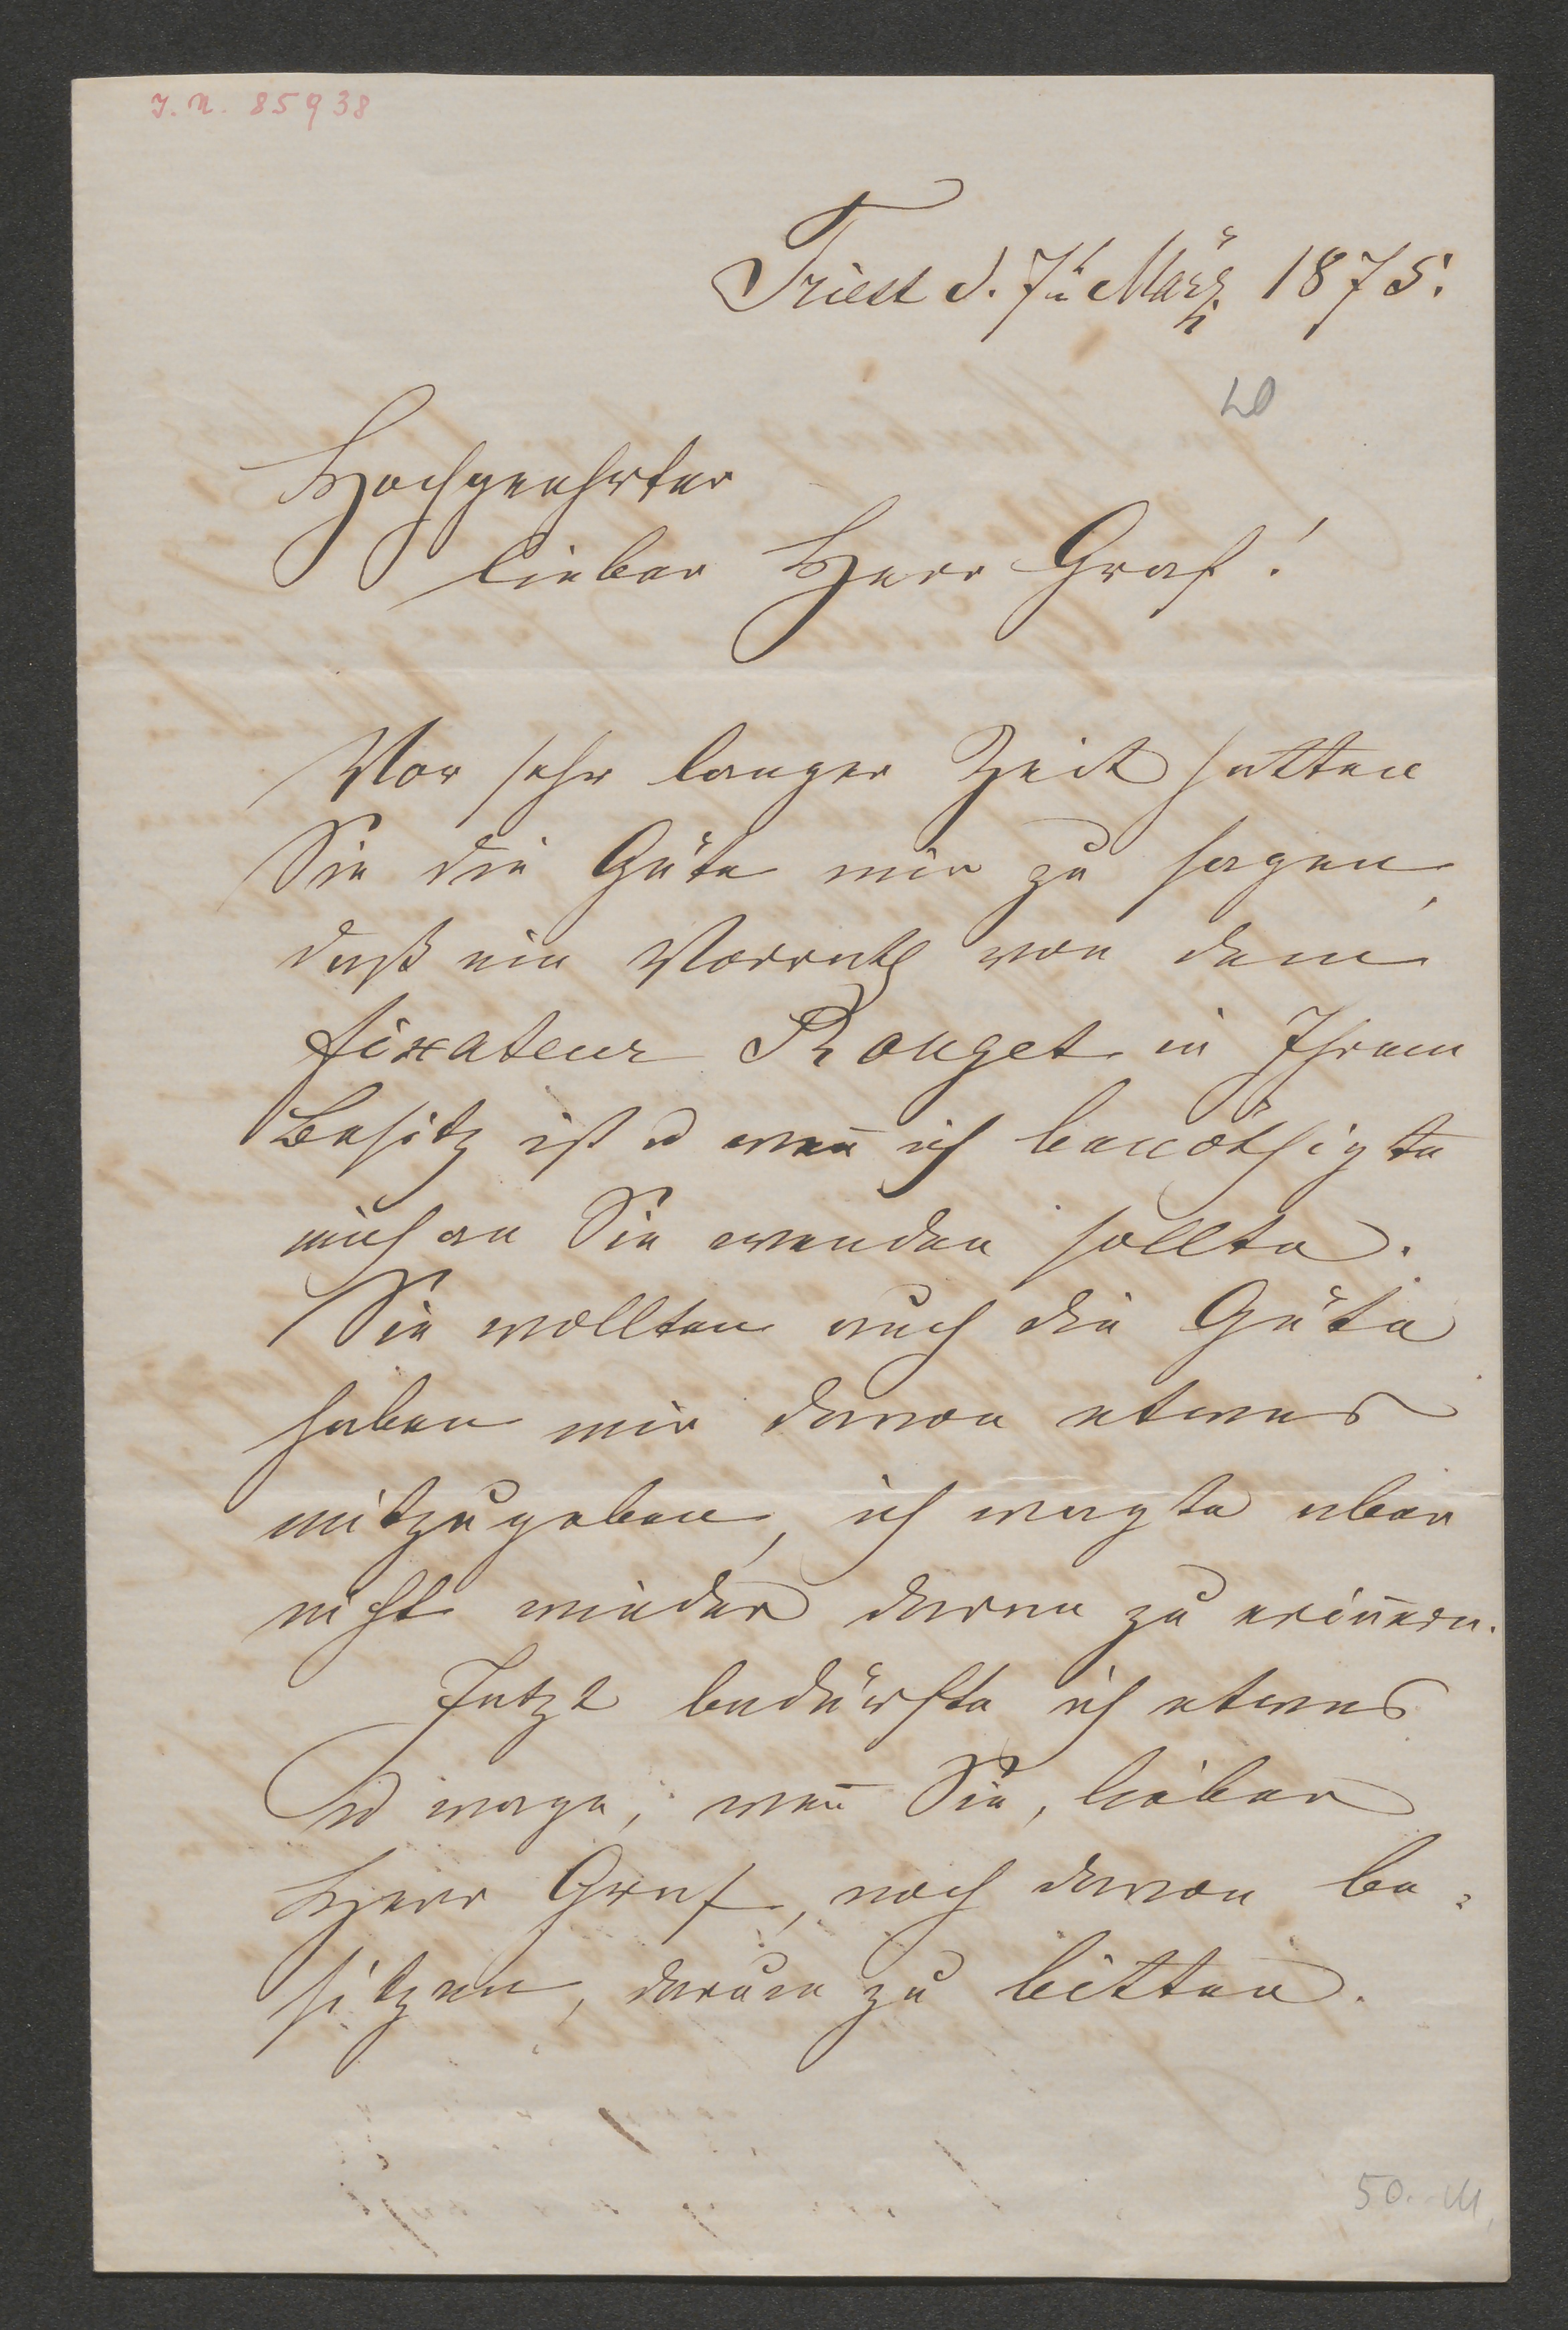 I. N. 85938
Triest d. 7t März 1875.
Hochgeehrter
lieber Herr Graf!
Vor sehr langer Zeit hatten
Sie die Güte mir zu sagen,
daß ein Vorrath von dem
fixateur Rouget in Ihrem
Besitz ist u weñ ich benöthigte
mich an Sie wenden sollte.
Sie wollten auch die Güte
haben mir davon etwas
mitzugeben, ich wagte aber
nicht wieder daran zu eriñern.
Jetzt bedürfte ich etwas
u wage, weñ Sie, lieber
Herr Graf, noch davon be-
sitzen, darum zu bitten.
50.-M